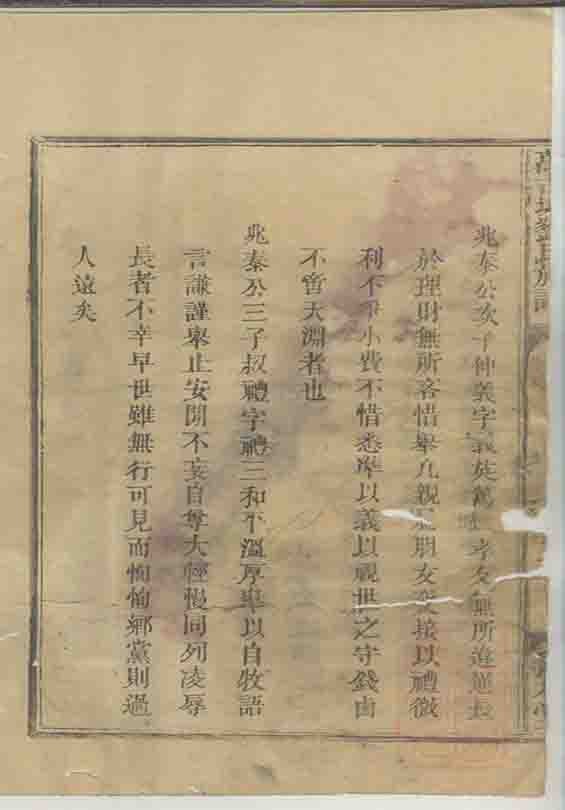 兆秦公次子仲義字義英萬孝友無所違逆長
於理財無所吝惜舉凡親朋友交接以禮微
利不小費不惜悉準以義以視世之守錢
不啻天淵者也
兆秦公三子叔禮字禮三和平溫厚卑以自牧語
言謙謹舉止安閒不妄自尊大輕慢同列凌辱
長者不幸早世雖無行可見而恂恂鄉黨則過
人遠矣